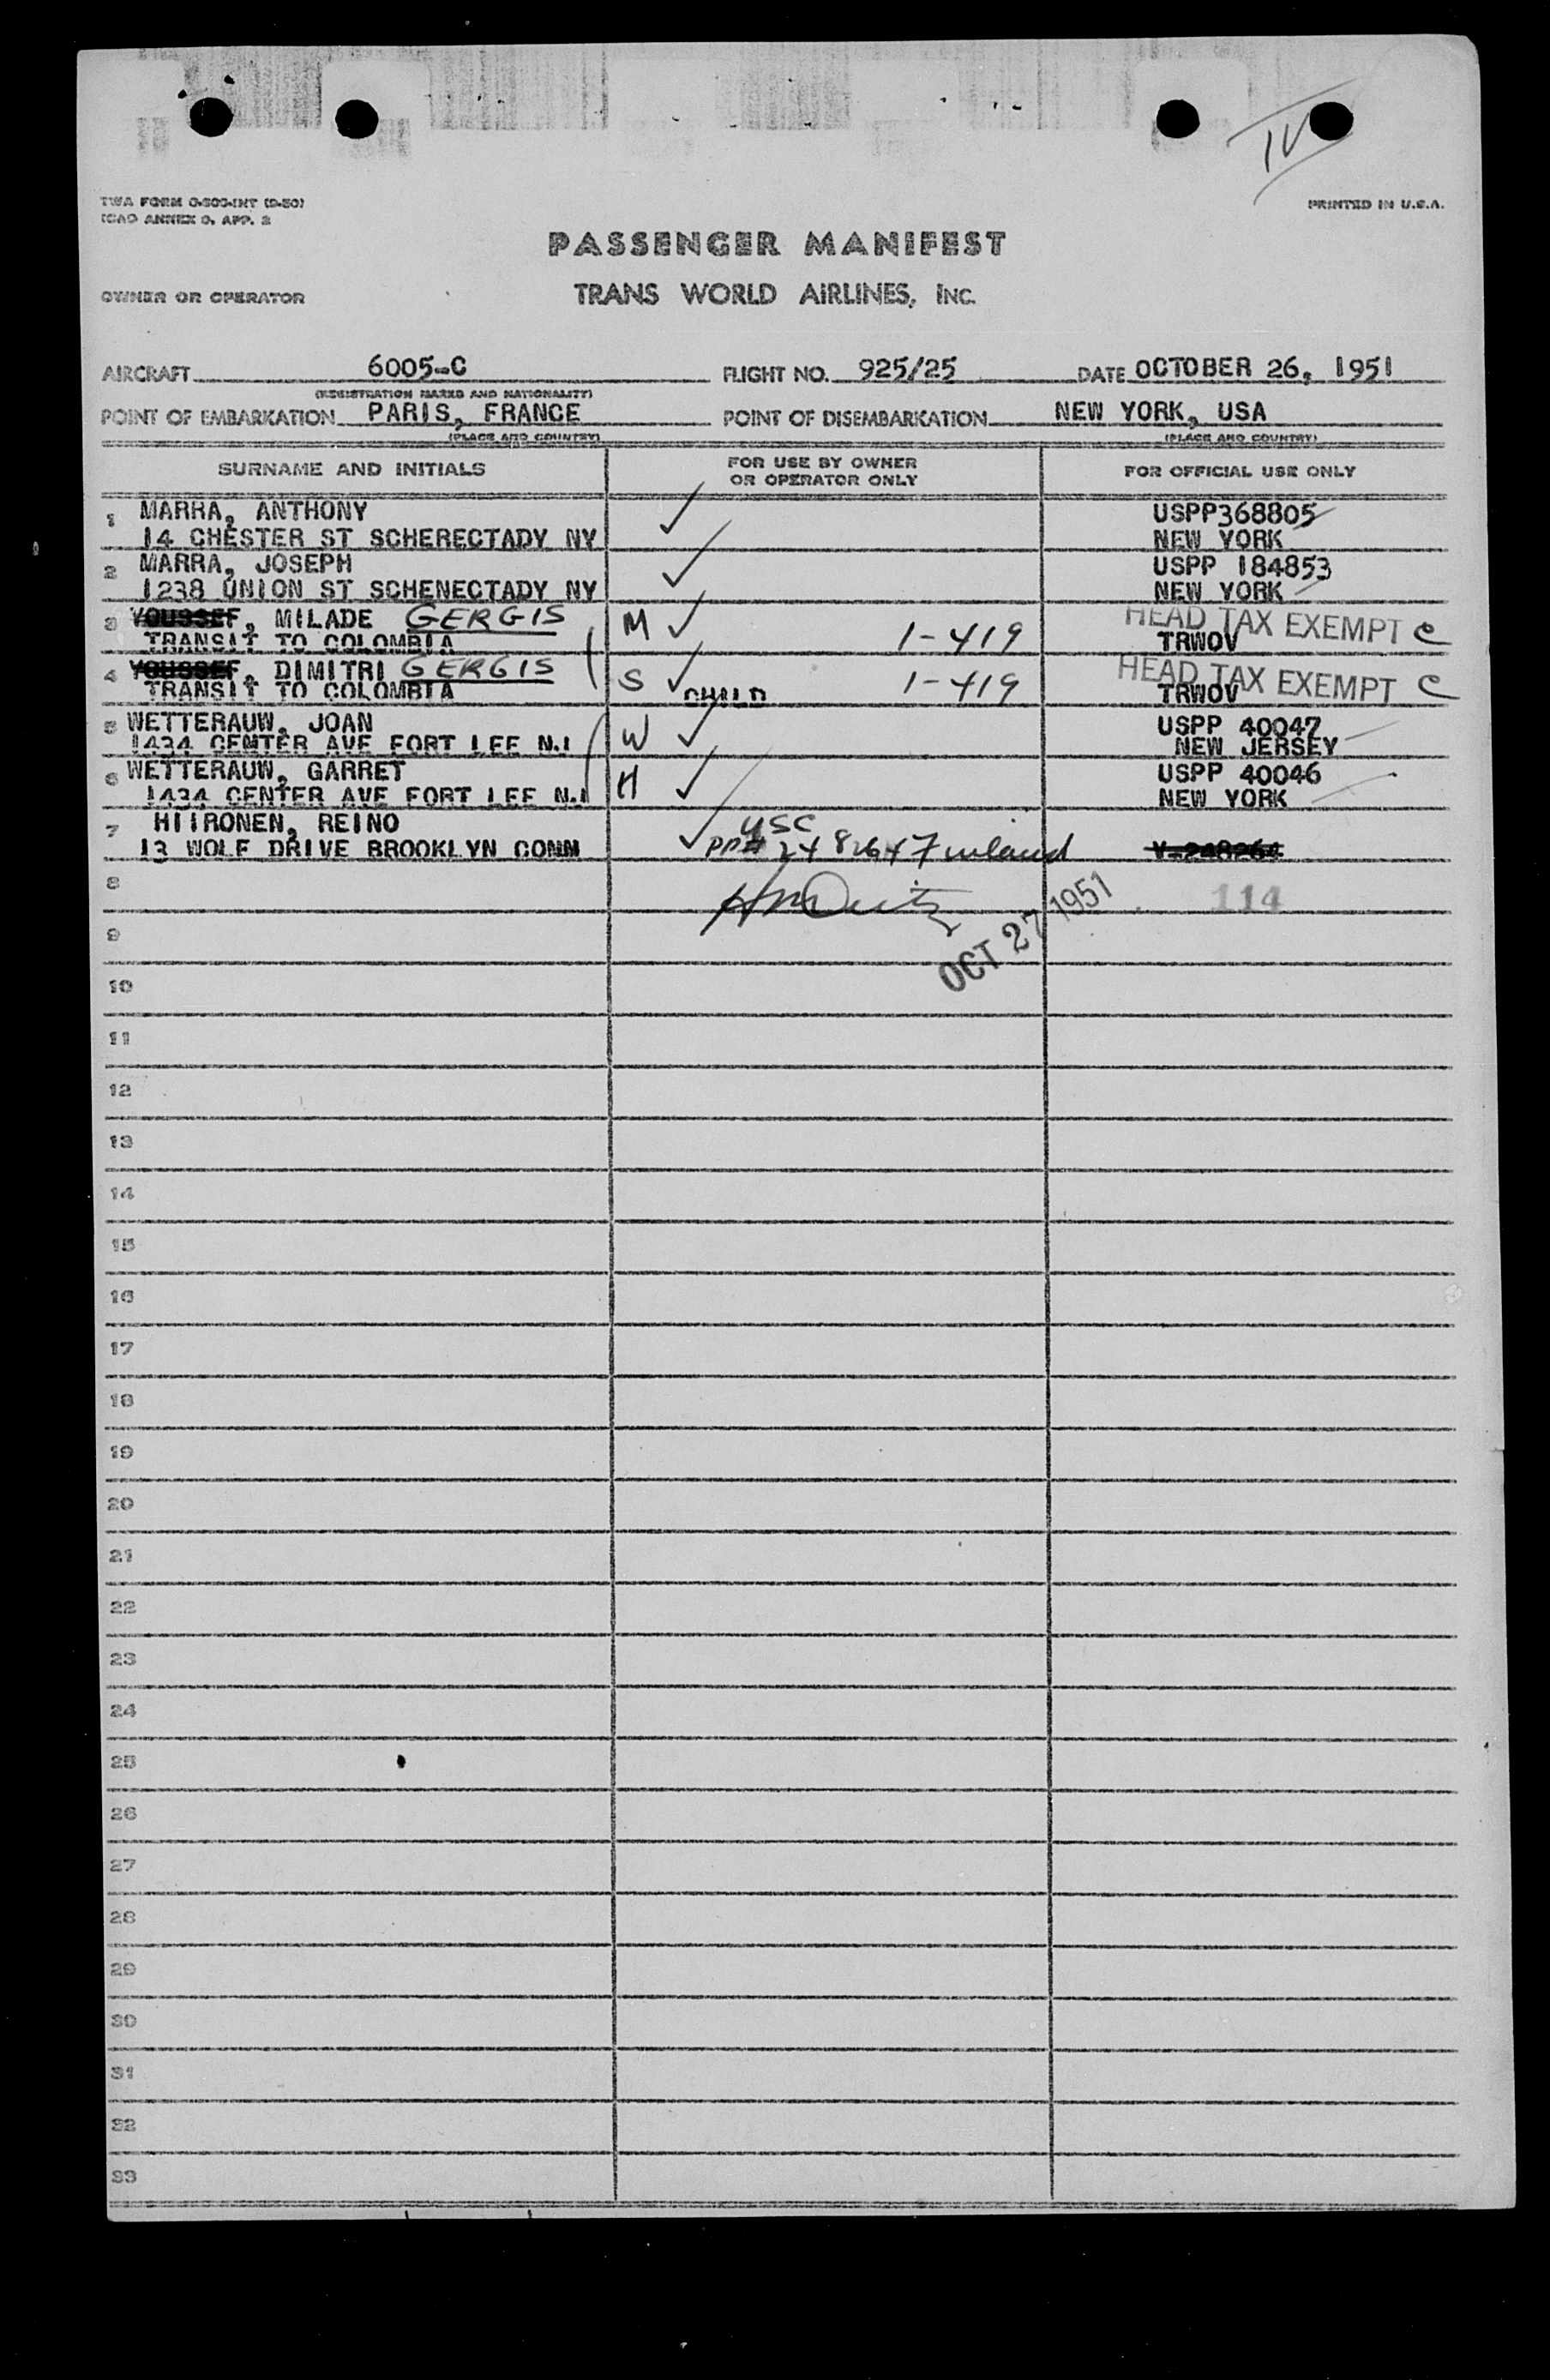 IV
TWA FORM O-509-INT (9-50)
ICAO ANNEX 9, APP. 2
PRINTED IN U.S.A.
PASSENGER MANIFEST
OWNER OR OPERATOR
TRANS WORLD AIRLINES, INC.
AIRCRAFT 6005-C FLIGHT NO. 925/25 DATE OCTOBER 26, 1951
(REGISTRATION MARKS AND NATIONALITY)
POINT OF EMBARKATION PARIS, FRANCE POINT OF DISEMBARKATION NEW YORK, USA
(PLACE AND COUNTRY) (PLACE AND COUNTRY)
SURNAME AND INITIALS FOR USE BY OWNER OR OPERATOR ONLY FOR OFFICIAL USE ONLY
1 MARRA, ANTHONY USPP368805
14 CHESTER ST SCHERECTADY NY NEW YORK
2 MARRA, JOSEPH USPP 184853
1238 UNION ST SCHENECTADY NY NEW YORK
3 YOUSSEF, MILADE GERGIS M 1-419 HEAD TAX EXEMPT C
TRANSIT TO COLOMBIA TRWOV
4 YOUSSEF, DIMITRI GERGIS S 1-419 HEAD TAX EXEMPT C
TRANSIT TO COLOMBIA CHILD TRWOV
5 WETTERAUW, JOAN W USPP 40047
1434 CENTER AVE FORT LEE N.J NEW JERSEY
6 WETTERAUW, GARRET H USPP 40046
1434 CENTER AVE FORT LEE N.J NEW YORK
7 HIIRONEN, REINO USC
13 WOLF DRIVE BROOKLYN CONN PP# V-248264
8 114
OCT 27 1951
9
10
11
12
13
14
15
16
17
18
19
20
21
22
23
24
25
26
27
28
29
30
31
32
33